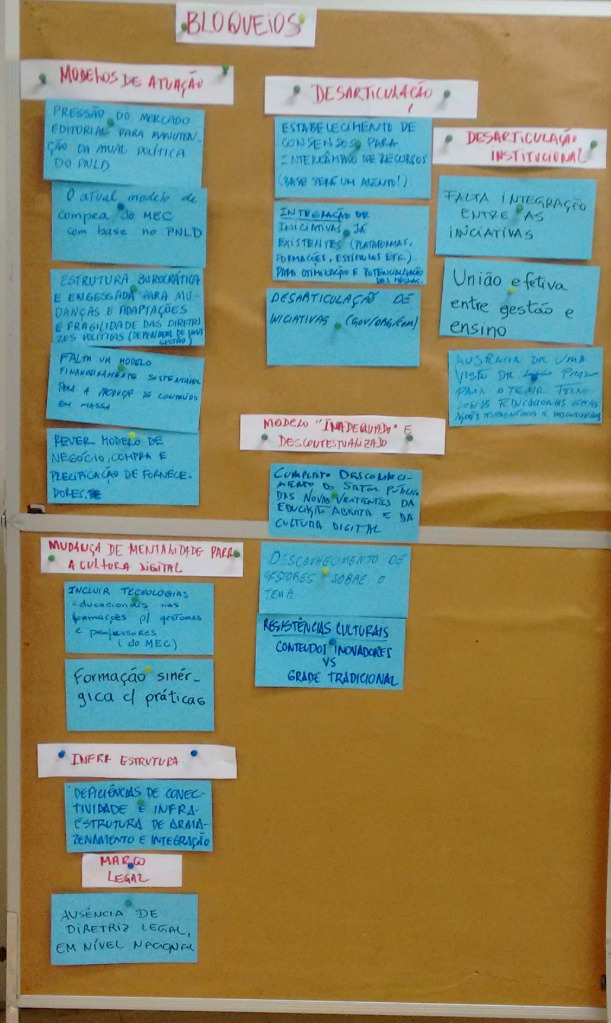 BLOQUEIOS
MODELOS DE ATUAÇÃO
PRESSÃO DO MERCADO
EDITORIAL PARA MANUTEN-
ÇÃO DA ATUAL POLÍTICA
DO PNLD
O atual modelo de
compra do MEC
com base no PNLD
ESTRUTURA BUROCRÁTICA
E ENGESSADA PARA MU-
DANÇAS E ADAPTAÇÕES
E FRAGILIDADE DAS DIRETRI-
ZES POLÍTICAS (DEPENDEM DE CADA
GESTÃO)
FALTA UM MODELO
FINANCEIRAMENTE SUSTENTÁVEL
PARA A PRODUÇÃO DE CONTEÚDOS
EM MASSA
REVER MODELO DE
NEGÓCIO, COMPRA E
PRECIFICAÇÃO DE FORNECE-
DORES.
DESARTICULAÇÃO
ESTABELECIMENTO DE
CONSENSOS PARA
INTERCÂMBIO DE RECURSOS
(BASE SERÁ UM ALENTO!)
INTEGRAÇÃO DE
INICIATIVAS JÁ
EXISTENTES (PLATAFORMAS,
FORMAÇÕES, ESTÍMULOS ETC.)
PARA OTIMIZAÇÃO E POTENCIALIZAÇÃO
DAS MESMAS.
DESARTICULAÇÃO DE
INICIATIVAS (GOV/ORG/COM)
DESARTICULAÇÃO
INSTITUCIONAL
FALTA INTEGRAÇÃO
ENTRE AS
INICIATIVAS
União efetiva
entre gestão e
ensino
AUSÊNCIA DE UMA
VISÃO DE LONGO PRAZO
PARA O TEMA TECNO-
LOGIAS EDUCACIONAIS
MODELO "INADEQUADO" E
DESCONTESTUALIZADO
COMPLETO DESCONHECI-
MENTO DO SETOR PÚBLICO
DAS NOVAS VERTENTES DA
EDUCAÇÃO ABERTA E DA
CULTURA DIGITAL
DESCONHECIMENTO DE
GESTORES SOBRE O
TEMA
RESISTÊNCIAS CULTURAIS
CONTEÚDOS INOVADORES
VS
GRADE TRADICIONAL
MUDANÇA DE MENTALIDADE PARA
A CULTURA DIGITAL
INCLUIR TECNOLOGIAS
educacionais nas
formações p/ gestores
e professores
(do MEC)
Formação sinér-
gica c/ práticas
INFRA ESTRUTURA
DEFICIÊNCIAS DE CONEC-
TIVIDADE E INFRA-
ESTRUTURA DE ARMA-
ZENAMENTO E INTEGRAÇÃO
MARCO
LEGAL
AUSÊNCIA DE
DIRETRIZ LEGAL,
EM NÍVEL NACIONAL